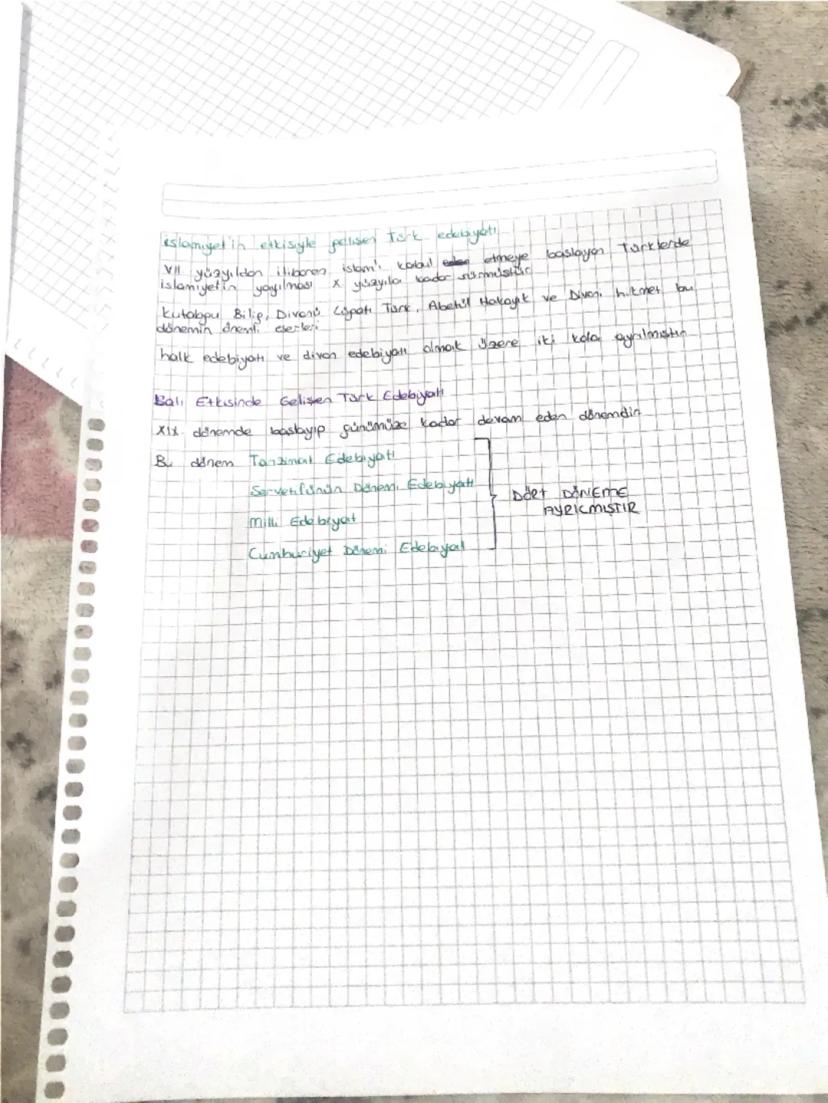 islamiyet'in etkisiyle gelişen Türk edebiyatı
VII yüzyıldan itibaren, islam'ı kabul etmeye başlayan Türklerde
islamiyetin yayılması X yüzyıla kadar sürmüştür
Kutadgu Bilig, Divanü Lügati Türk, Abetül Hakayık ve Divanı hikmet bu
dönemin önemli eserleri
halk edebiyatı ve divan edebiyatı olmak üzere iki kola ayrılmıştır
Batı Etkisinde Gelişen Türk Edebiyatı
XIX dönemde başlayıp günümüze kadar devam eden dönemdir
Bu dönem Tanzimat Edebiyatı
Servetifünün Dönemi Edebiyatı
Milli Edebiyat
Cumhuriyet Dönemi Edebiyat
DÖRT DÖNEME
AYRILMIŞTIR